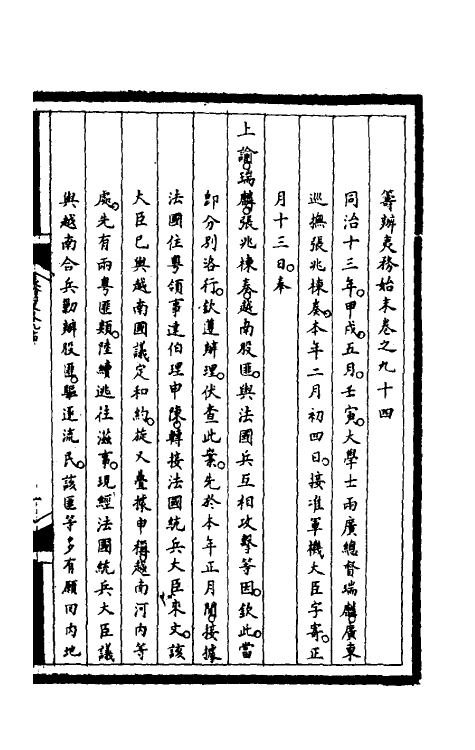 籌辦夷務始末卷之九十四
同治十三年。甲戌。五月。壬寅。大學士兩廣總督瑞麟。廣東
巡撫張兆棟奏。本年二月初四日。接准軍機大臣字寄。正
月十三日。奉
上諭。瑞麟。張兆棟奏。越南股匪。與法國兵互相攻擊等因。欽此。當
即分別洛行。欽遵辦理。伏查此案。先於本年正月間。接據
法國住粵領事達伯理申陳。轉接法國統兵大臣來文。該
大臣已與越南國議定和約。旋又疊據申稱。越南河內等
處。先有兩粵匪類。陸續逃往滋事。現經法國統兵大臣議
與越南合兵勦辦股匪。驅逐流民。該匪等多有願回內地